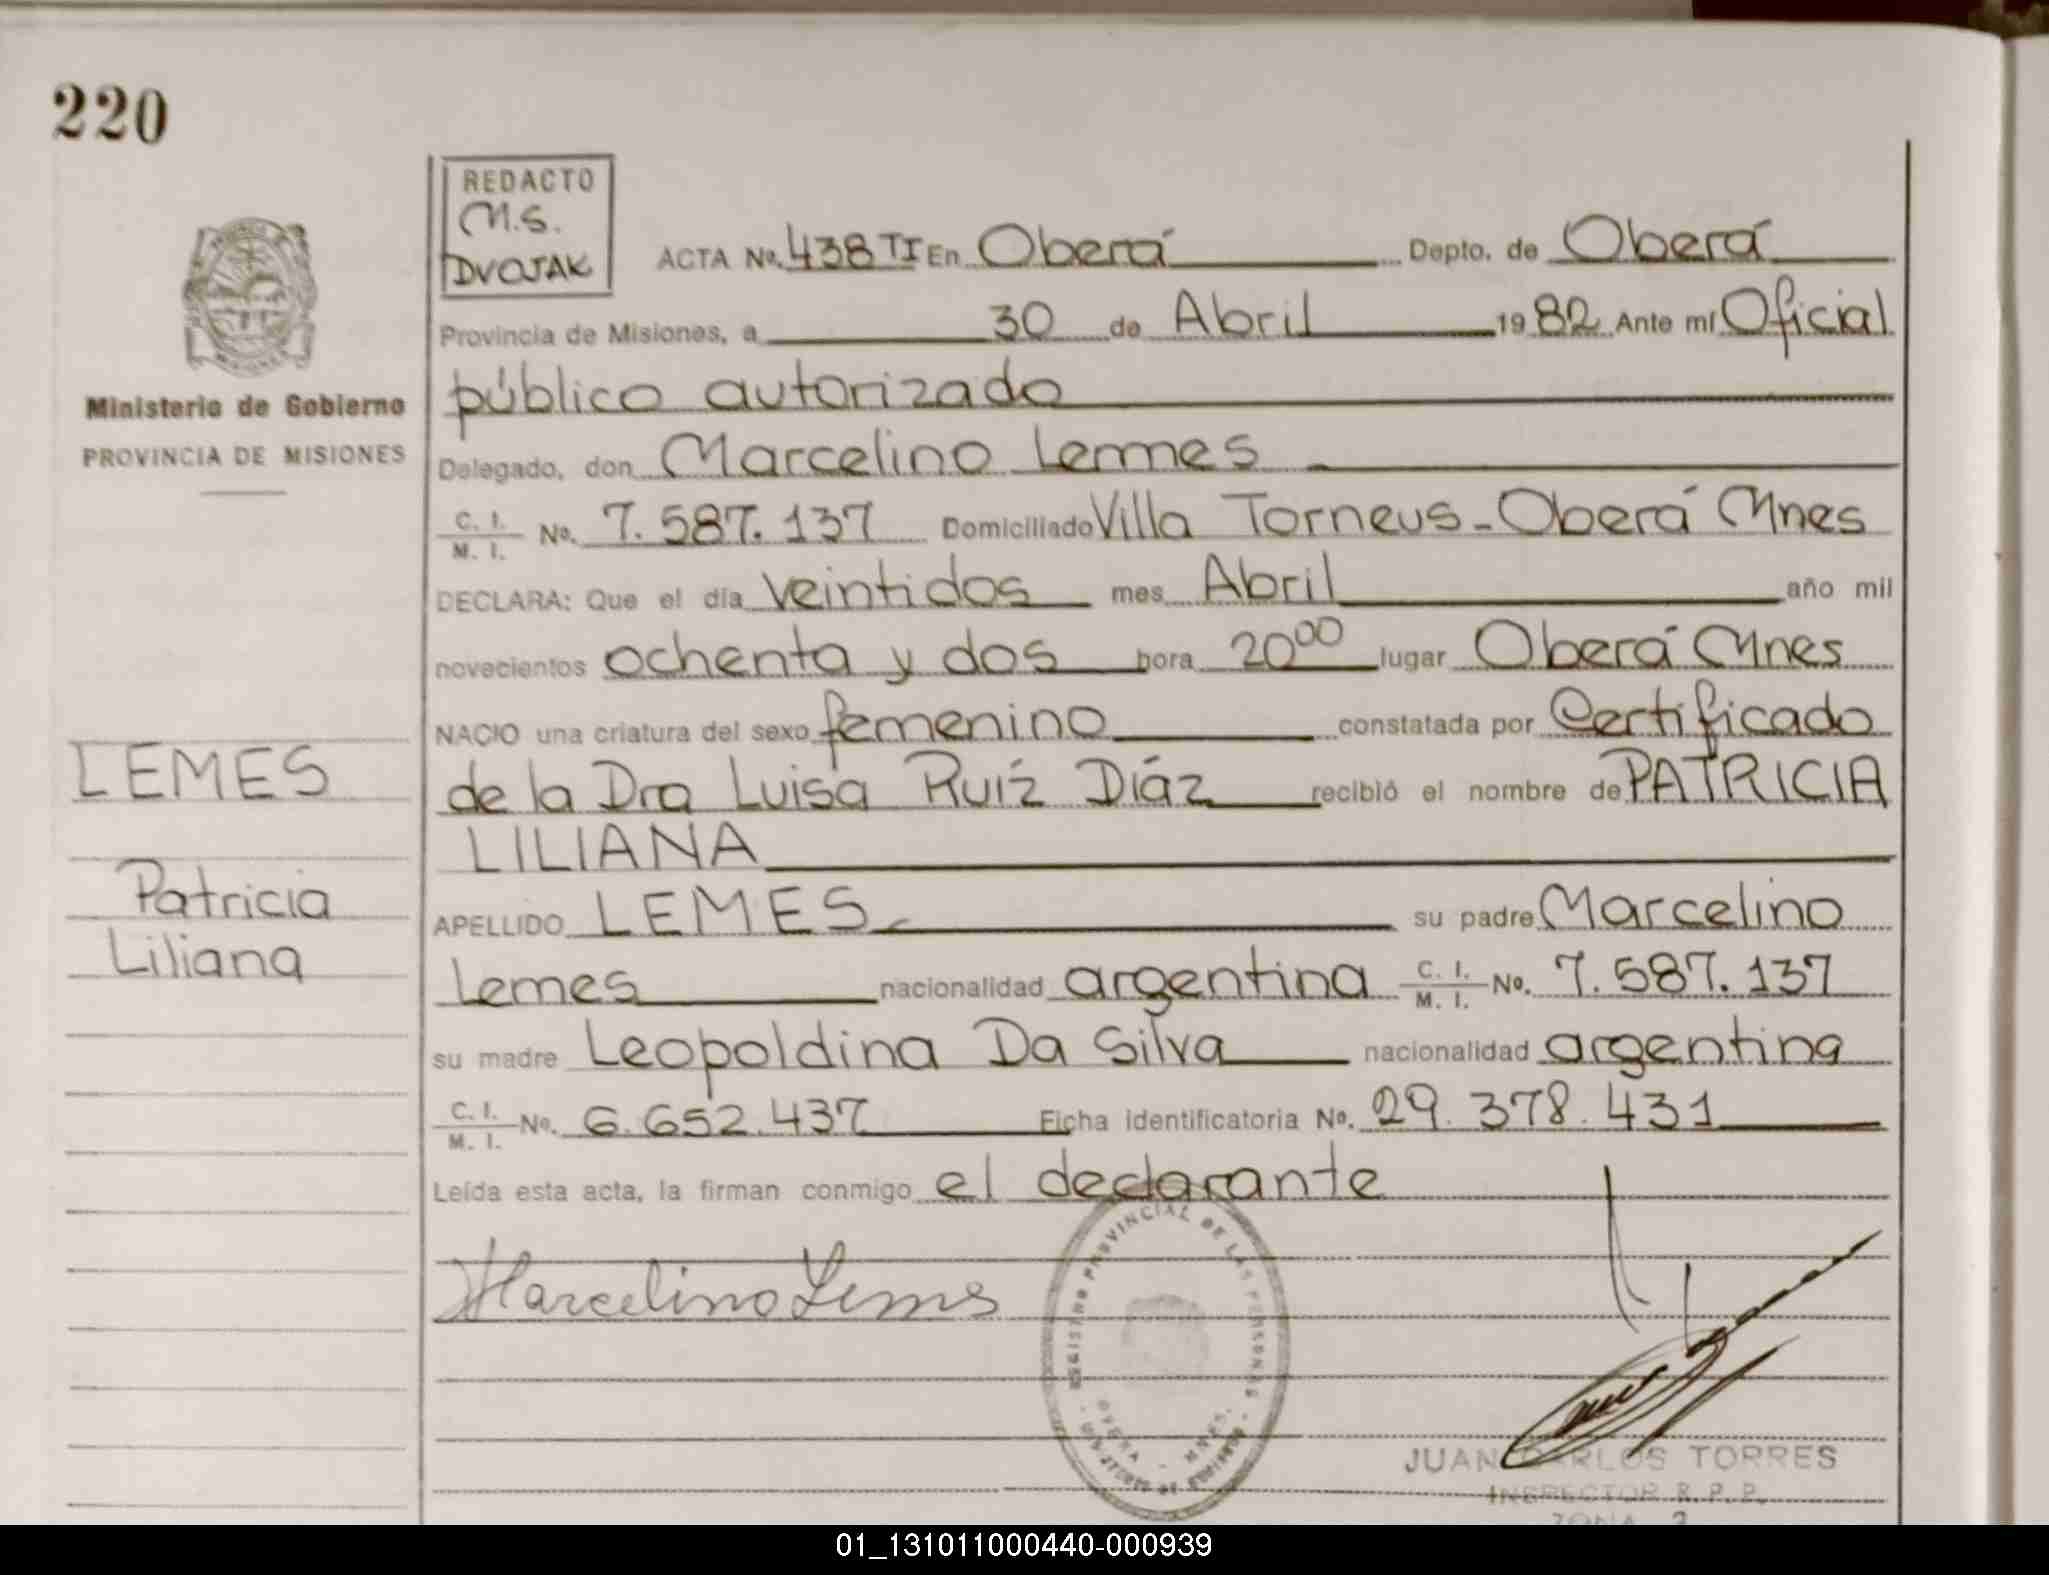 220
REDACTO
M.S.
DVOJAK
ACTA No. 438 TI En Oberá Depto. de Oberá
Provincia de Misiones, a 30 de Abril 1982 Ante mí Oficial
público autorizado
Ministerio de Gobierno
PROVINCIA DE MISIONES
Delegado, don Marcelino Lemes
C. I.
M. I.
No. 7.587.137 Domiciliado Villa Torneus - Oberá Mnes
DECLARA: Que el día veintidos mes Abril año mil
novecientos ochenta y dos hora 20⁰⁰ lugar Oberá Mnes
NACIO una criatura del sexo femenino constatada por Certificado
LEMES
de la Dra Luisa Ruíz Díaz recibió el nombre de PATRICIA
LILIANA
Patricia
Liliana
APELLIDO LEMES su padre Marcelino
Lemes nacionalidad argentina C. I. M. I. No. 7.587.137
su madre Leopoldina Da Silva nacionalidad argentina
C. I.
M. I.
No. 6.652.437 Ficha identificatoria No. 29.378.431
Leída esta acta, la firman conmigo el declarante
Marcelino Lemes
REGISTRO PROVINCIAL DE LAS PERSONAS
OBERA - MNES.
JUAN CARLOS TORRES
INSPECTOR R.P.P.
ZONA 3
01_131011000440-000939